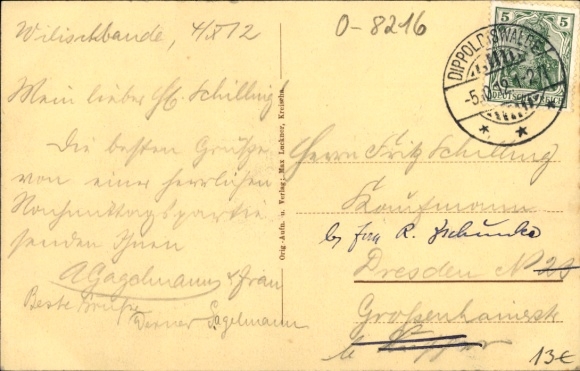 Wilischbaude, 4/X 12
O-8216
Mein lieber H. Schilling!
Die besten Grüße
von einer herrlichen
Nachmittagspartie
senden Ihnen
A Gagelmann & Frau
Beste Grüße
Werner Gagelmann
Orig.-Aufn. u. Verlag: Max Lackner, Kreischa.
5 5
DEUTSCHES REICH
DIPPOLDISWALDE
-5.10.12. 1-2 N
Herrn Fritz Schilling
Kaufmann
R. Zschunke
Dresden N 23
Großenhainerstr
13€